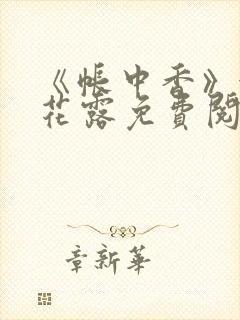 《帐中香》
花露免费阅
章新华